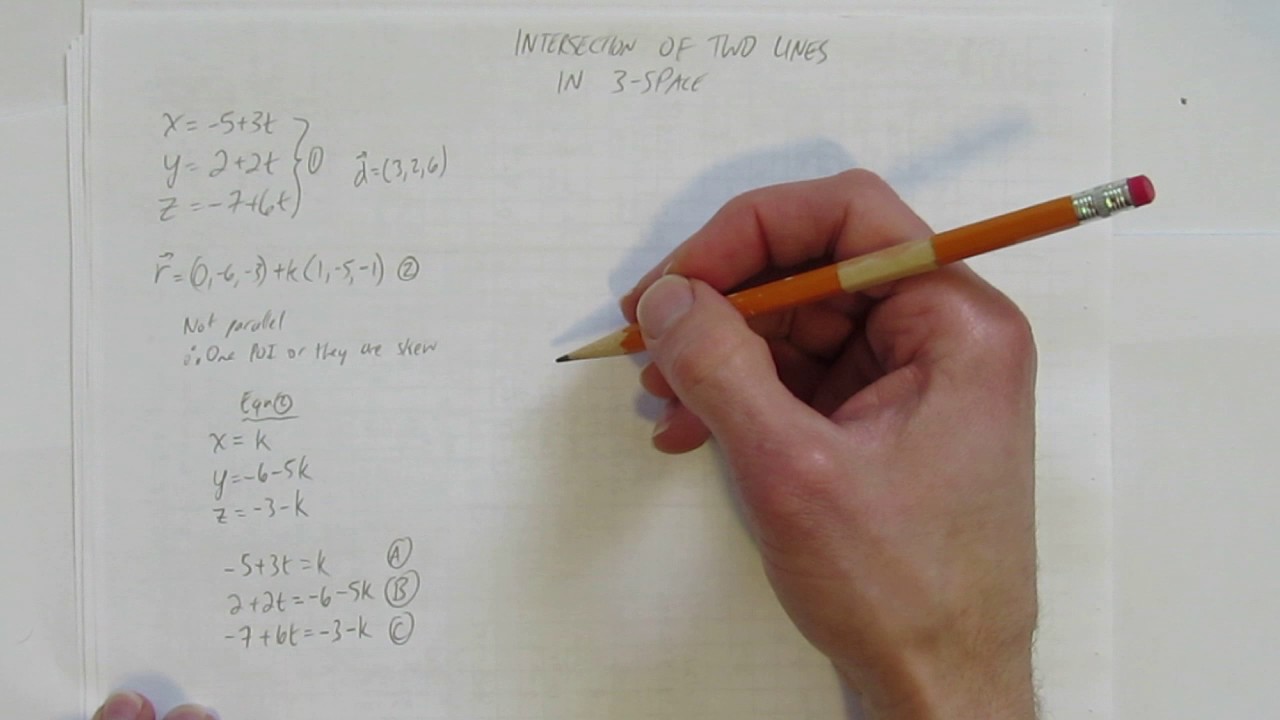 INTERSECTION OF TWO LINES
IN 3-SPACE
x = -5+3t
y = 2+2t } ① d⃗=(3,2,6)
z = -7+6t
r⃗=(0,-6,-3)+k(1,-5,-1) ②
Not parallel
∴ One POI or they are skew
Eqn②
x = k
y=-6-5k
z = -3-k
-5+3t=k Ⓐ
2+2t=-6-5k Ⓑ
-7+6t=-3-k Ⓒ